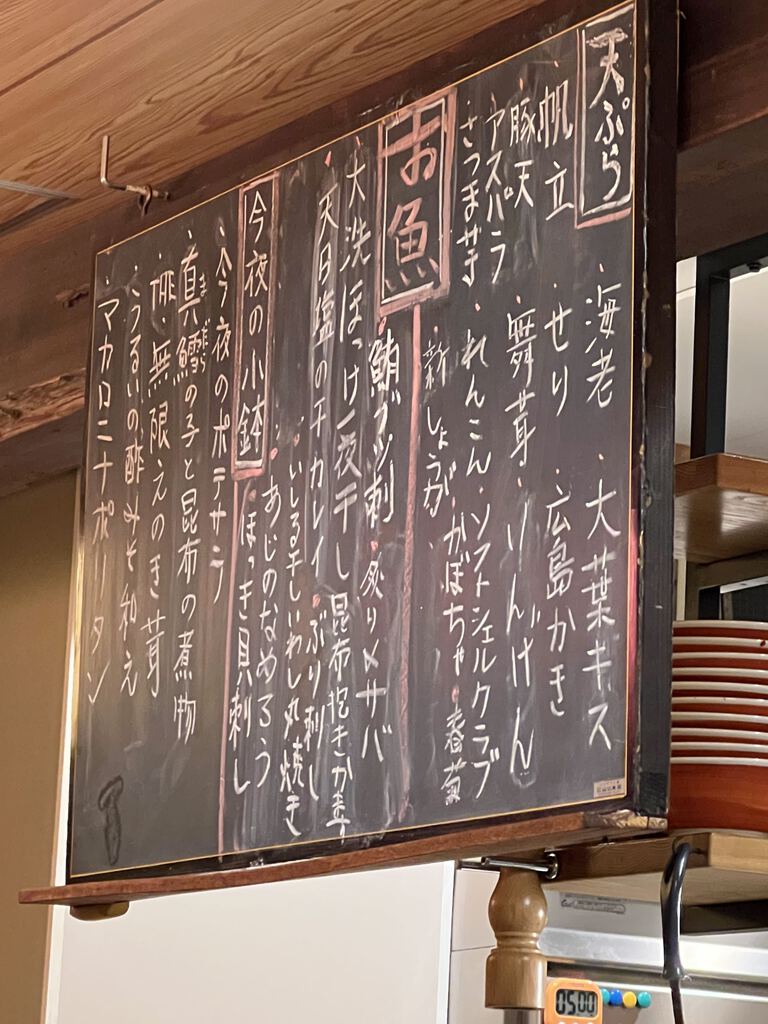 天ぷら
・海老 ・大葉キス
・帆立 ・せり ・広島かき
・豚天 ・舞茸 ・いんげん
・アスパラ ・れんこん ・ソフトシェルクラブ
・さつま芋 ・新しょうが ・かぼちゃ ・春菊
お魚
・鮪ブツ刺 ・炙り〆サバ
・大洗ほっけ一夜干し
・天日塩の干カレイ ・ぶり刺し
・いしる干しいわし丸焼き
・あじのなめろう
・ほっき貝刺し
今夜の小鉢
・今夜のポテサラ
・真鱈の子と昆布の煮物
まだら
無限えのき茸
・うるいの酢みそ和え
・マカロニナポリタン
05:00